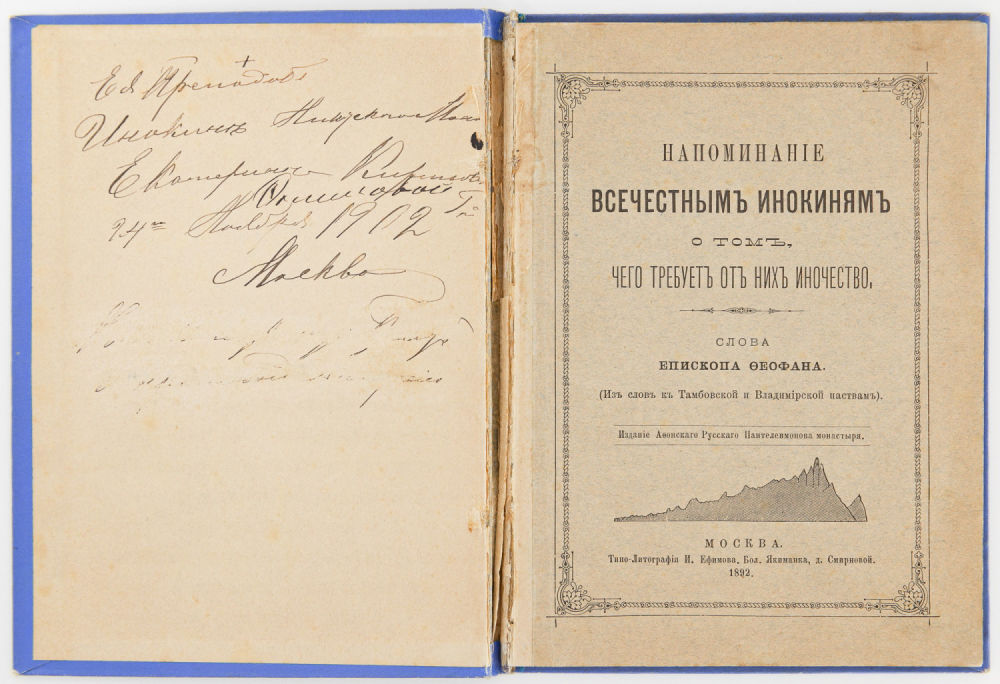 Ея Преподоб
Инокинѣ
Екатеринѣ
24го Ноября 1902 Го
Москва
НАПОМИНАНІЕ
ВСЕЧЕСТНЫМЪ ИНОКИНЯМЪ
О ТОМЪ,
ЧЕГО ТРЕБУЕТЪ ОТЪ НИХЪ ИНОЧЕСТВО,
СЛОВА
ЕПИСКОПА ѲЕОФАНА.
(Изъ словъ къ Тамбовской и Владимірской паствамъ).
Изданіе Аѳонскаго Русскаго Пантелеимонова монастыря.
МОСКВА.
Типо-Литографія И. Ефимова, Бол. Якиманка, д. Смирновой.
1892.